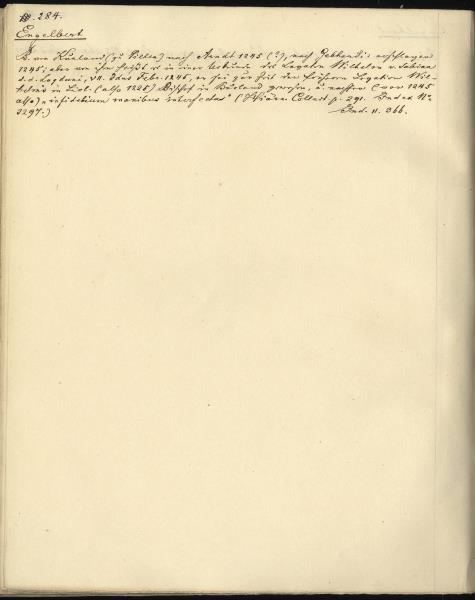 284.
Engelbert
B. von Kurland (zu Pilten) nach Arndt 1245 (?), nach Gebhardi: erschlagen
1245; aber von ihm heißt es in einer Urkunde des Legaten Wilhelm v. Sabina
d.d. Lugduni, VII. Idus Febr. 1246, er sei zur Zeit der frühern Legation Wil-
helms in Livl. (also 1225) Bischof in Kurland gewesen, u. nachher (vor 1245
also) „infidelium manibus interfectus“ ( Collect. p. 291. Index No
3297.)
Ind. II. 366.